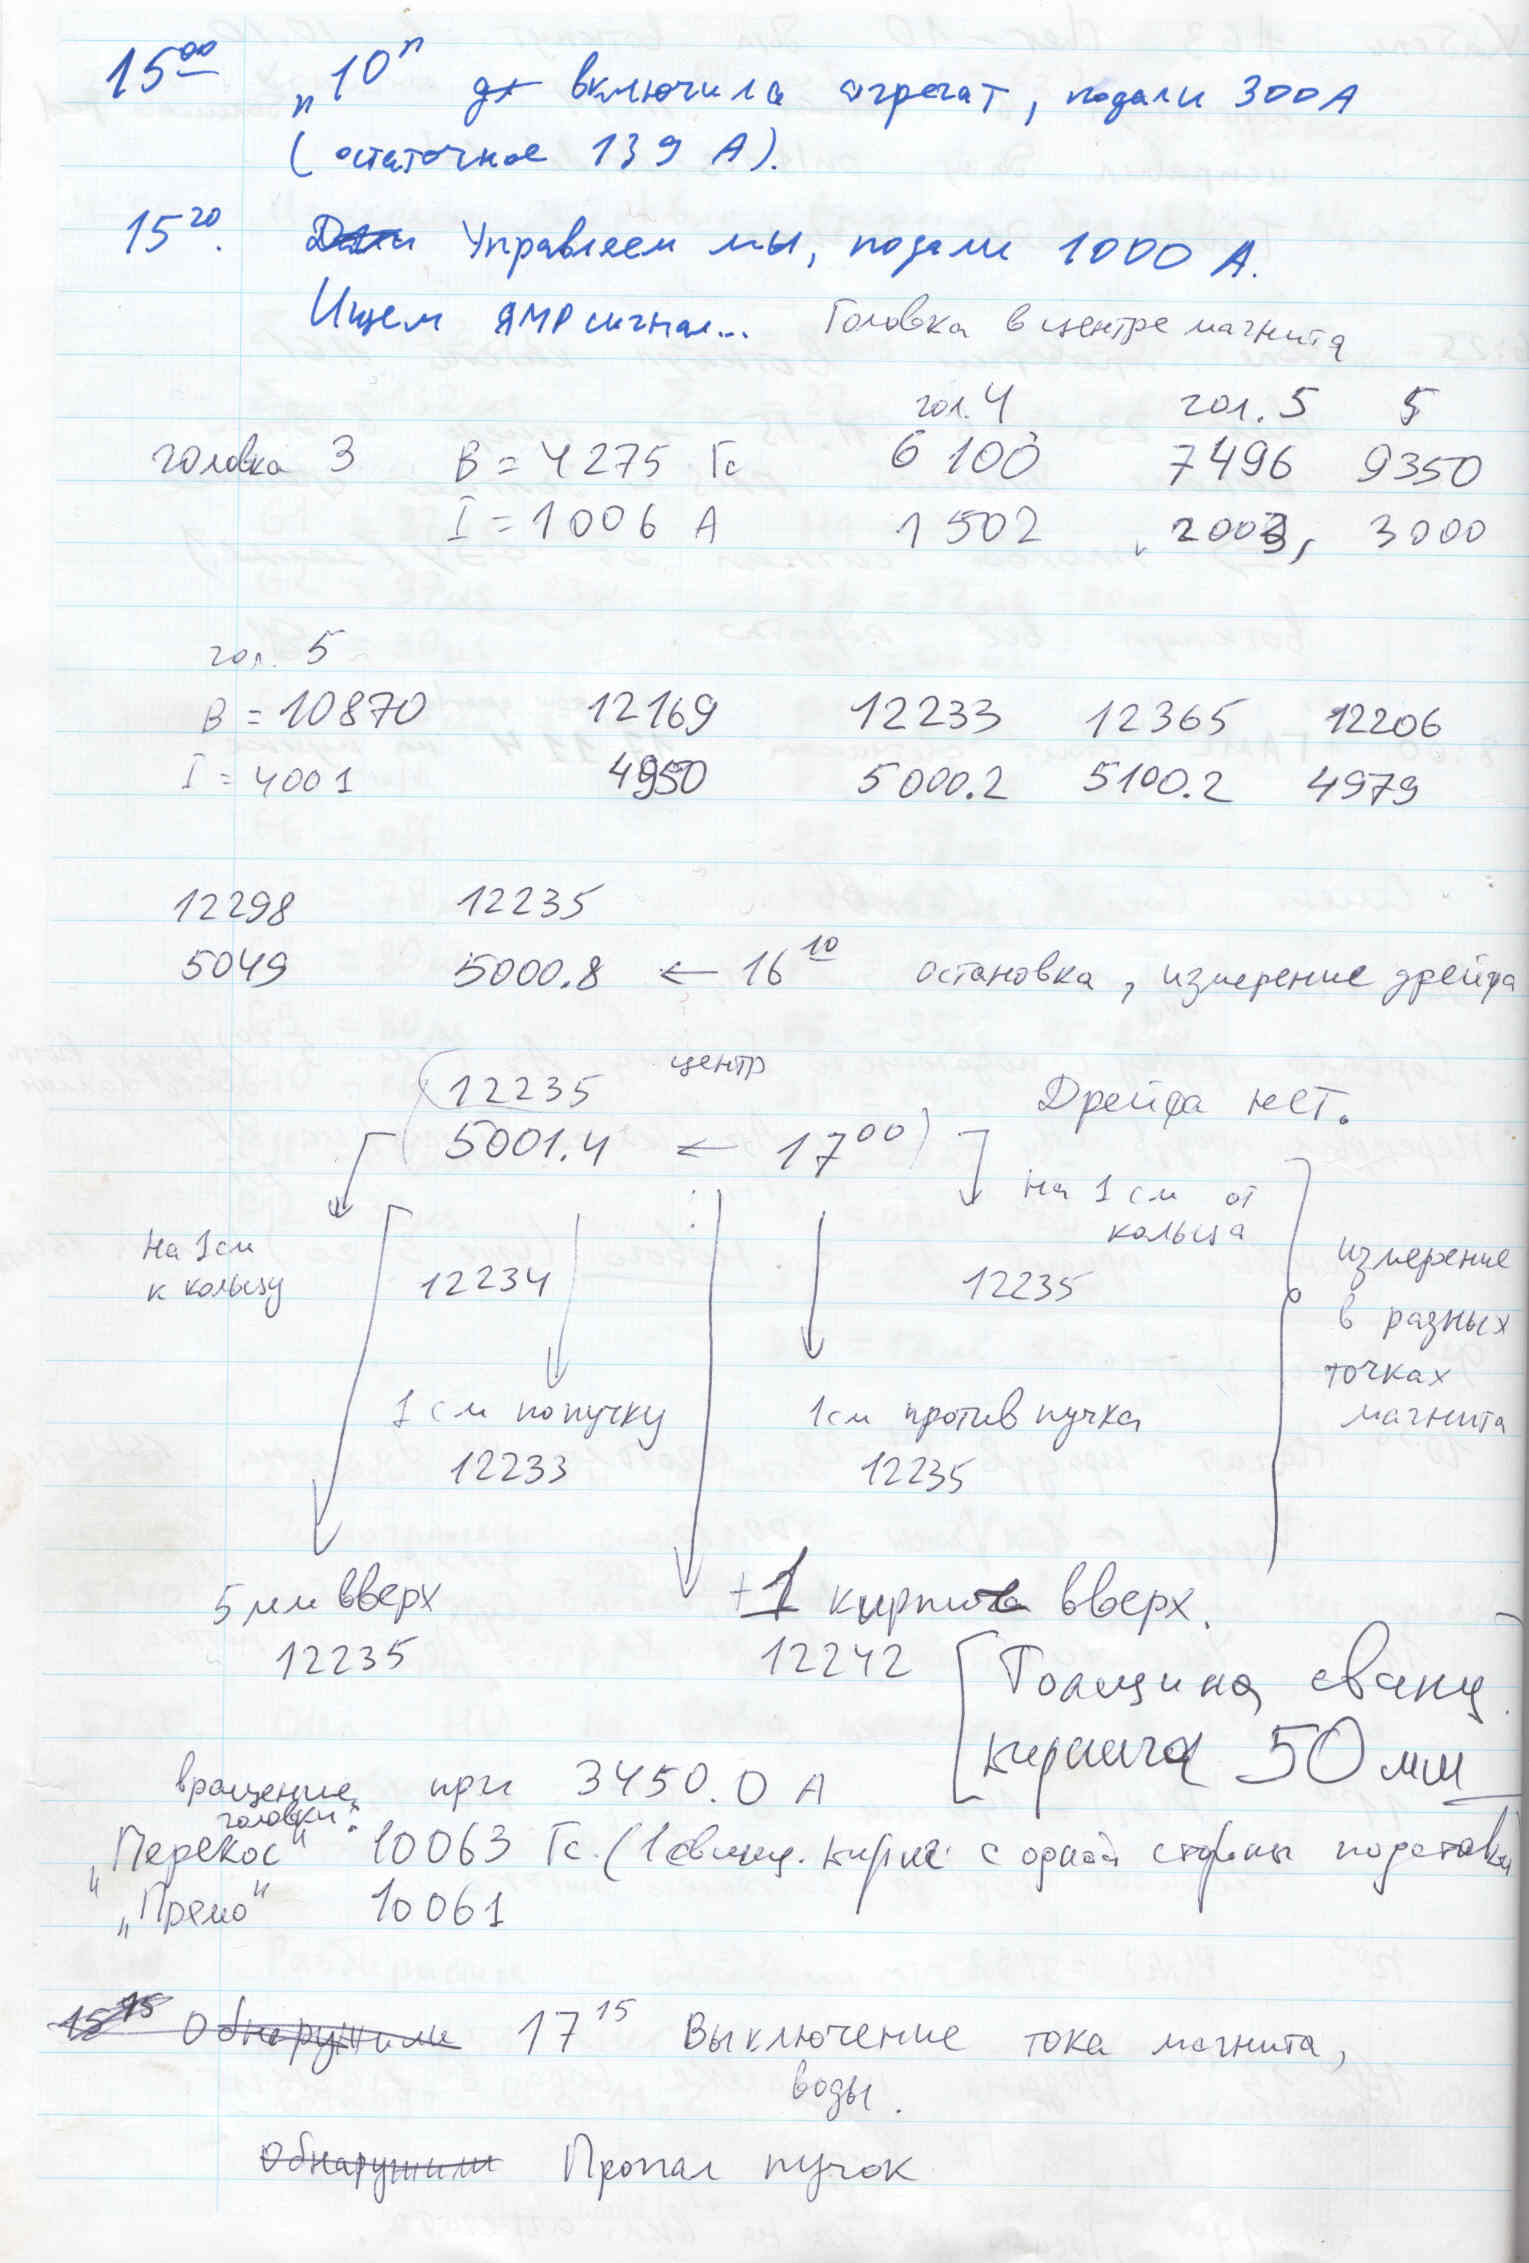 15⁰⁰ „10" включила агрегат, подали 300 А
(остаточное 139 А).
15²⁰. Управляем мы, подали 1000 А.
Ищем ЯМР сигнал... Головка в центре магнита
гол. 4 гол. 5 5
головка 3 B = 4275 Гс 6100 7496 9350
I = 1006 А 1502 2003, 3000
гол. 5
B = 10870 12169 12233 12365 12206
I = 4001 4950 5000.2 5100.2 4979
12298 12235
5049 5000.8 ← 16¹⁰ остановка, измерение дрейфа
(12235 центр Дрейфа нет.
5001.4 ← 17⁰⁰)
На 1 см от
кольца
На 1 см
к кольцу
12234 12235
измерение
в разных
точках
магнита
1 см по пучку 1 см против пучка
12233 12235
5 мм вверх +1 кирпич вверх.
12235 12242
[Толщина свинц.
кирпича 50 мм
вращение головки: при 3450.0 А
„Перекос" 10063 Гс. (1 свинц. кирпич с одной стороны подставки
„Прямо" 10061
15¹⁵ Обнаружили 17¹⁵ Выключение тока магнита,
воды.
Обнаружили Пропал пучок